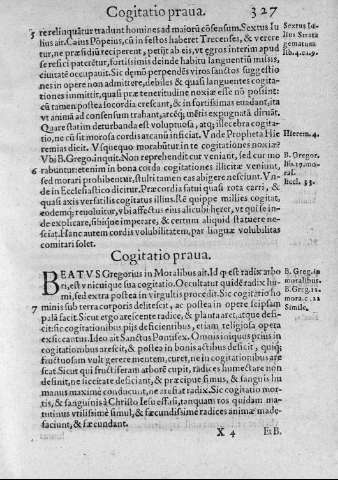 Cogitatio praua. 327
5 re relinquãtur tradunt homines ad maiorũ cõsensum. Sextus Iu
lius ait. Caius Põpeius, cũ in festos haberet Trecenses, & verere
tur, ne præsidiũ reciperent, petijt ab eis, vt ægros interim apud
se refici paterẽtur, fortissimis deinde habitu languentiũ missis,
ciuitatẽ occupauit. Sic dęmõ perpendẽs viros sanctos suggestio
nes in opere non admittere, debiles & quasi languentes cogita-
tiones immittit, quasi præ teneritudine noxiæ esse nõ possint:
cũ tamen postea socordia crescant, & in fortissimas euadant, ita
vt animã ad consensum trahant, arcẽq; mẽtis expugnatã diruãt.
Quare statim deturbanda est voluptosa, atq; illecebra cogita-
tio, ne cũ sit morosa cordis arcanũ inficiat. Vnde Propheta Hie
remias dicit. Vsquequo morabũtur in te cogitationes noxiæ?
Vbi B. Grego. inquit. Non reprehendit cur veniant, sed cur mo
6 rabuntur: etenim in bona corda cogitationes illicitæ veniunt,
sed morari prohibentur, stulti tamen eas abigere nesciunt. Vn-
de in Ecclesiastico dicitur. Præcordia fatui quasi rota carri, &
quasi axis versatilis cogitatus illius. Re quippe millies cogitat,
eodemq; reuoluitur, vbi affectus eius alicubi hæret, vt qui se in-
de explicare, sibique imperare, & certum aliquid statuere ne-
sciat. Hanc autem cordis volubilitatem, par linguæ volubilitas
comitari solet.
Sextus Iu-
lius Strata
gematum
lib. 4. c. 9.
Hierem. 4.
B. Gregor.
Eccl. 33.
Cogitatio praua.
BEATVS Gregorius in Moralibus ait. Id q; est radix arbo
ri, est vnicuique sua cogitatio. Occultatur quidẽ radix hu
mi, sed extra postea in virgultis proceditt. Sic cogitatio ho
7 minis sub terra corporis delitescat, ac postea in opere seipsam
palã facit. Sicut ergo arescente radice, & planta arescit, atque defi-
cit: sic cogitationibus pijs deficientibus, etiam religiosa opera
exsiccantur. Ideo ait Sanctus Pontifex. Omnis iniquus prius in
cogitationibus arescit, & postea in bonis actibus deficit, quiq;
fructuosum vult gerere mentem, curet, ne in cogitationibus are
scat. Sicut qui fructiferam arborẽ cupit, radices humectare non
desinit, ne siccitate deficiant, & præcipue fimus, & sanguis hu
manus maximè conducunt, ne arescat radix. Sic cogitatio mor-
tis, & sanguinis à Christo Iesu effusi, tanquam ros quidam ma-
tutinus vtilissimè simul, & fæcundissime radices animæ made-
faciunt, & fæcundant.
B. Greg. in
moralibus.
B. Greg. 12.
mora. c. 22
Simile.
X 4 Et B.